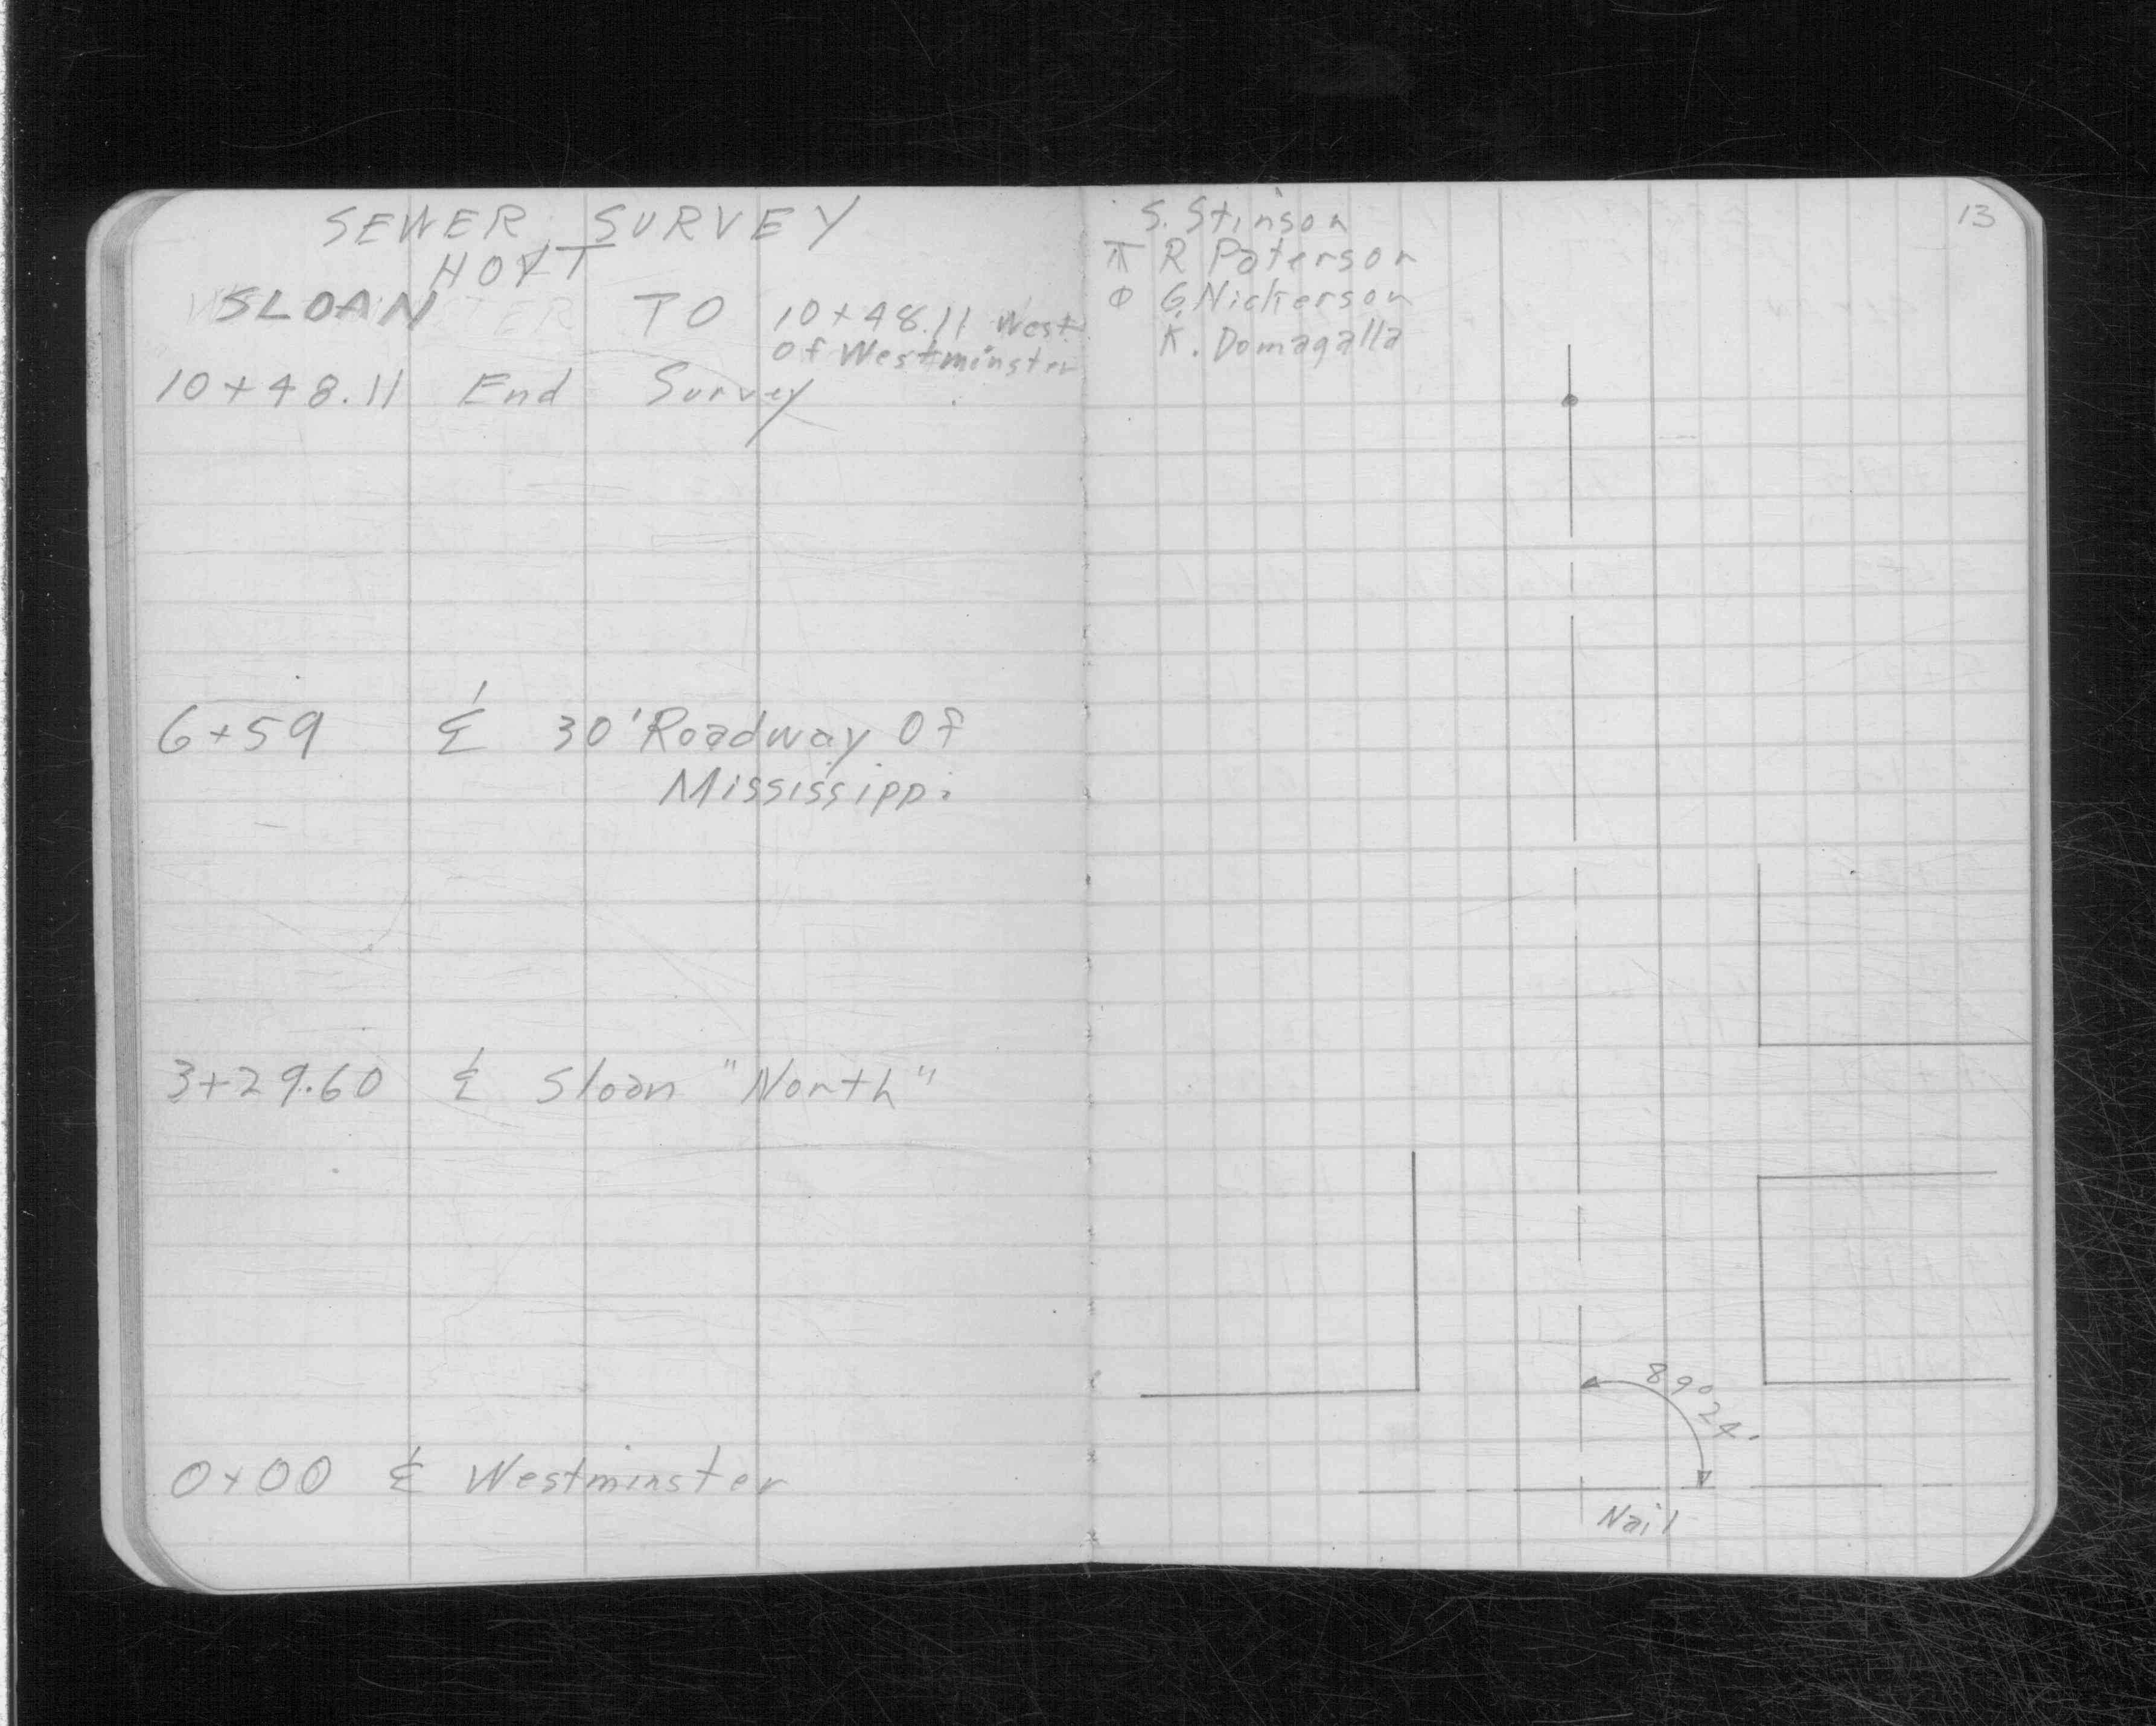 SEWER SURVEY
HOYT
SLOAN TO 10+48.11 West
Of Westminster
10+48.11 End Survey
6+59 ℄ 30' Roadway Of
Mississippi
3+29.60 ℄ Sloan "North"
0+00 ℄ Westminster
13
S. Stinson
⊼ R Paterson
Φ G. Nickerson
K. Domagalla
89° 24'
Nail